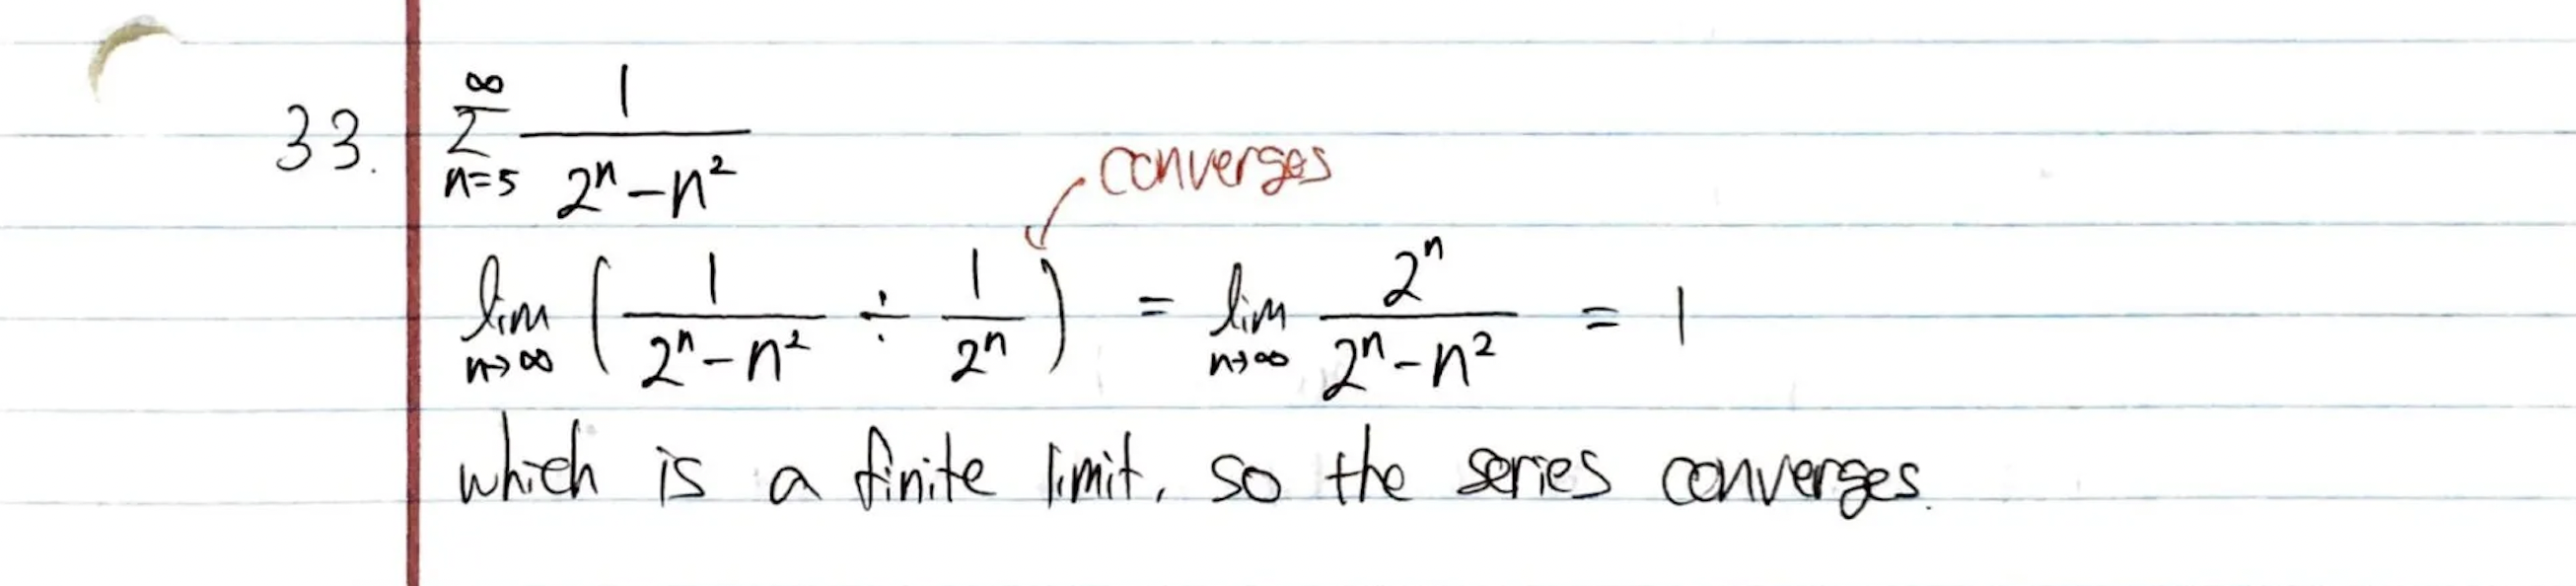 33. ∞ Σ n=5 1/(2ⁿ − n²)
converges
lim n→∞ (1/(2ⁿ − n²) ÷ 1/2ⁿ) = lim n→∞ 2ⁿ/(2ⁿ − n²) = 1
which is a finite limit, so the series converges.